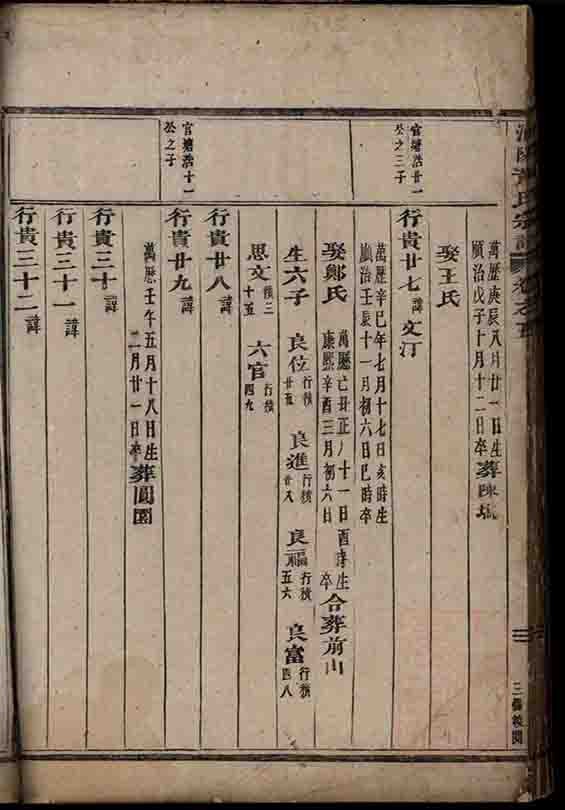 氏宗譜
卷之
三
三
萬歷庚辰八月廿一日生
順治戊子十月十二日卒 葬陳塢
娶王氏
官塘浩廿一
公之三子
行貴廿七 諱 文汀
萬歷辛巳年七月十七日亥時生
順治壬辰十一月初六日巳時卒
娶鄭氏
萬歷己丑正月十一日酉時生
康熙辛酉三月初六日 卒 合葬前山
生六子 良位 行積廿五 良進 行積廿八 良福 行積五六 良富 行積四八
思文 積三十五 六官 行積四九
行貴廿八 諱
官塘浩十一
公之子
行貴廿九 諱
行貴三十 諱
萬歷壬午五月十八日生
二月廿一日卒 葬園
行貴三十一 諱
行貴三十二 諱